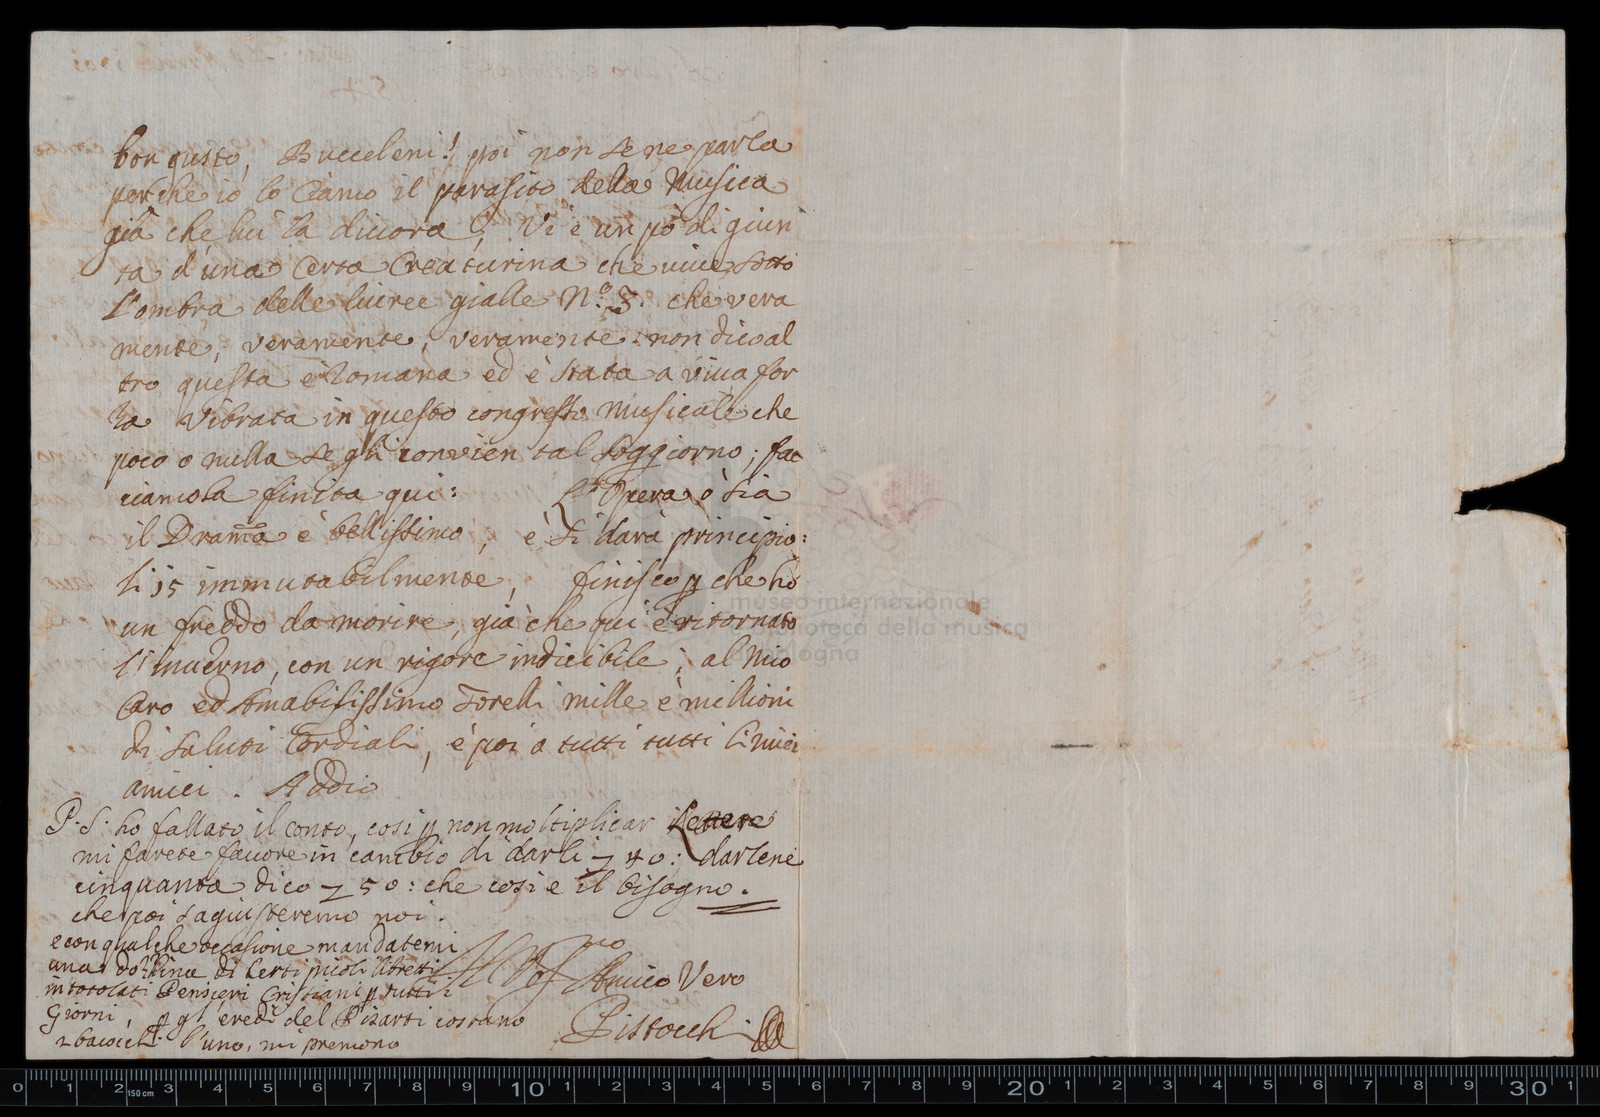 bon gusto, Bucceleni! poi non se ne parla
perche io lo Ciamo il parasito della Musica
già che lui la divora, Vi è un pò di giun
ta d'una Certa Creaturina che vive sotto
l'ombra delle livree gialle N.º 3. che vera
mente, veramente, veramente non dico al
tro questa è Romana ed è stata a viva for
za vibrata in questo congresso Musicale che
poco o nulla se gli convien tal soggiorno; fac
ciamola finita qui: L'Opera ò sia
il Drama è bellissimo, è si darà principio:
li 15 immutabilmente, finisco p che hò
un freddo da morire, già che qui è ritornato
l'inverno, con un rigore indicibile; al Mio
Caro ed Amabilissimo Torelli mille è millioni
di saluti Cordiali, è poi a tutti tutti li miei
amici. Addio
P. S. ho fallato il conto, così p non moltiplicar Lettere
mi farete favore in cambio di darli 40: darlene
cinquanta dico 50: che così e il bisogno.
che poi s'agiusteremo noi.
e con qualche occasione mandatemi
una dozzina di certi picoli libretti
intitolati Pensieri Cristiani p tutti i
Giorni, p gl'eredi del Pisarri costano
2 baiocchi l'uno, mi premono
Amico Vero
Pistocchi
museo internazionale
e biblioteca della musica
di bologna
0 1 2 3 4 5 6 7 8 9 10 1 2 3 4 5 6 7 8 9 20 1 2 3 4 5 6 7 8 9 30 1
150 cm